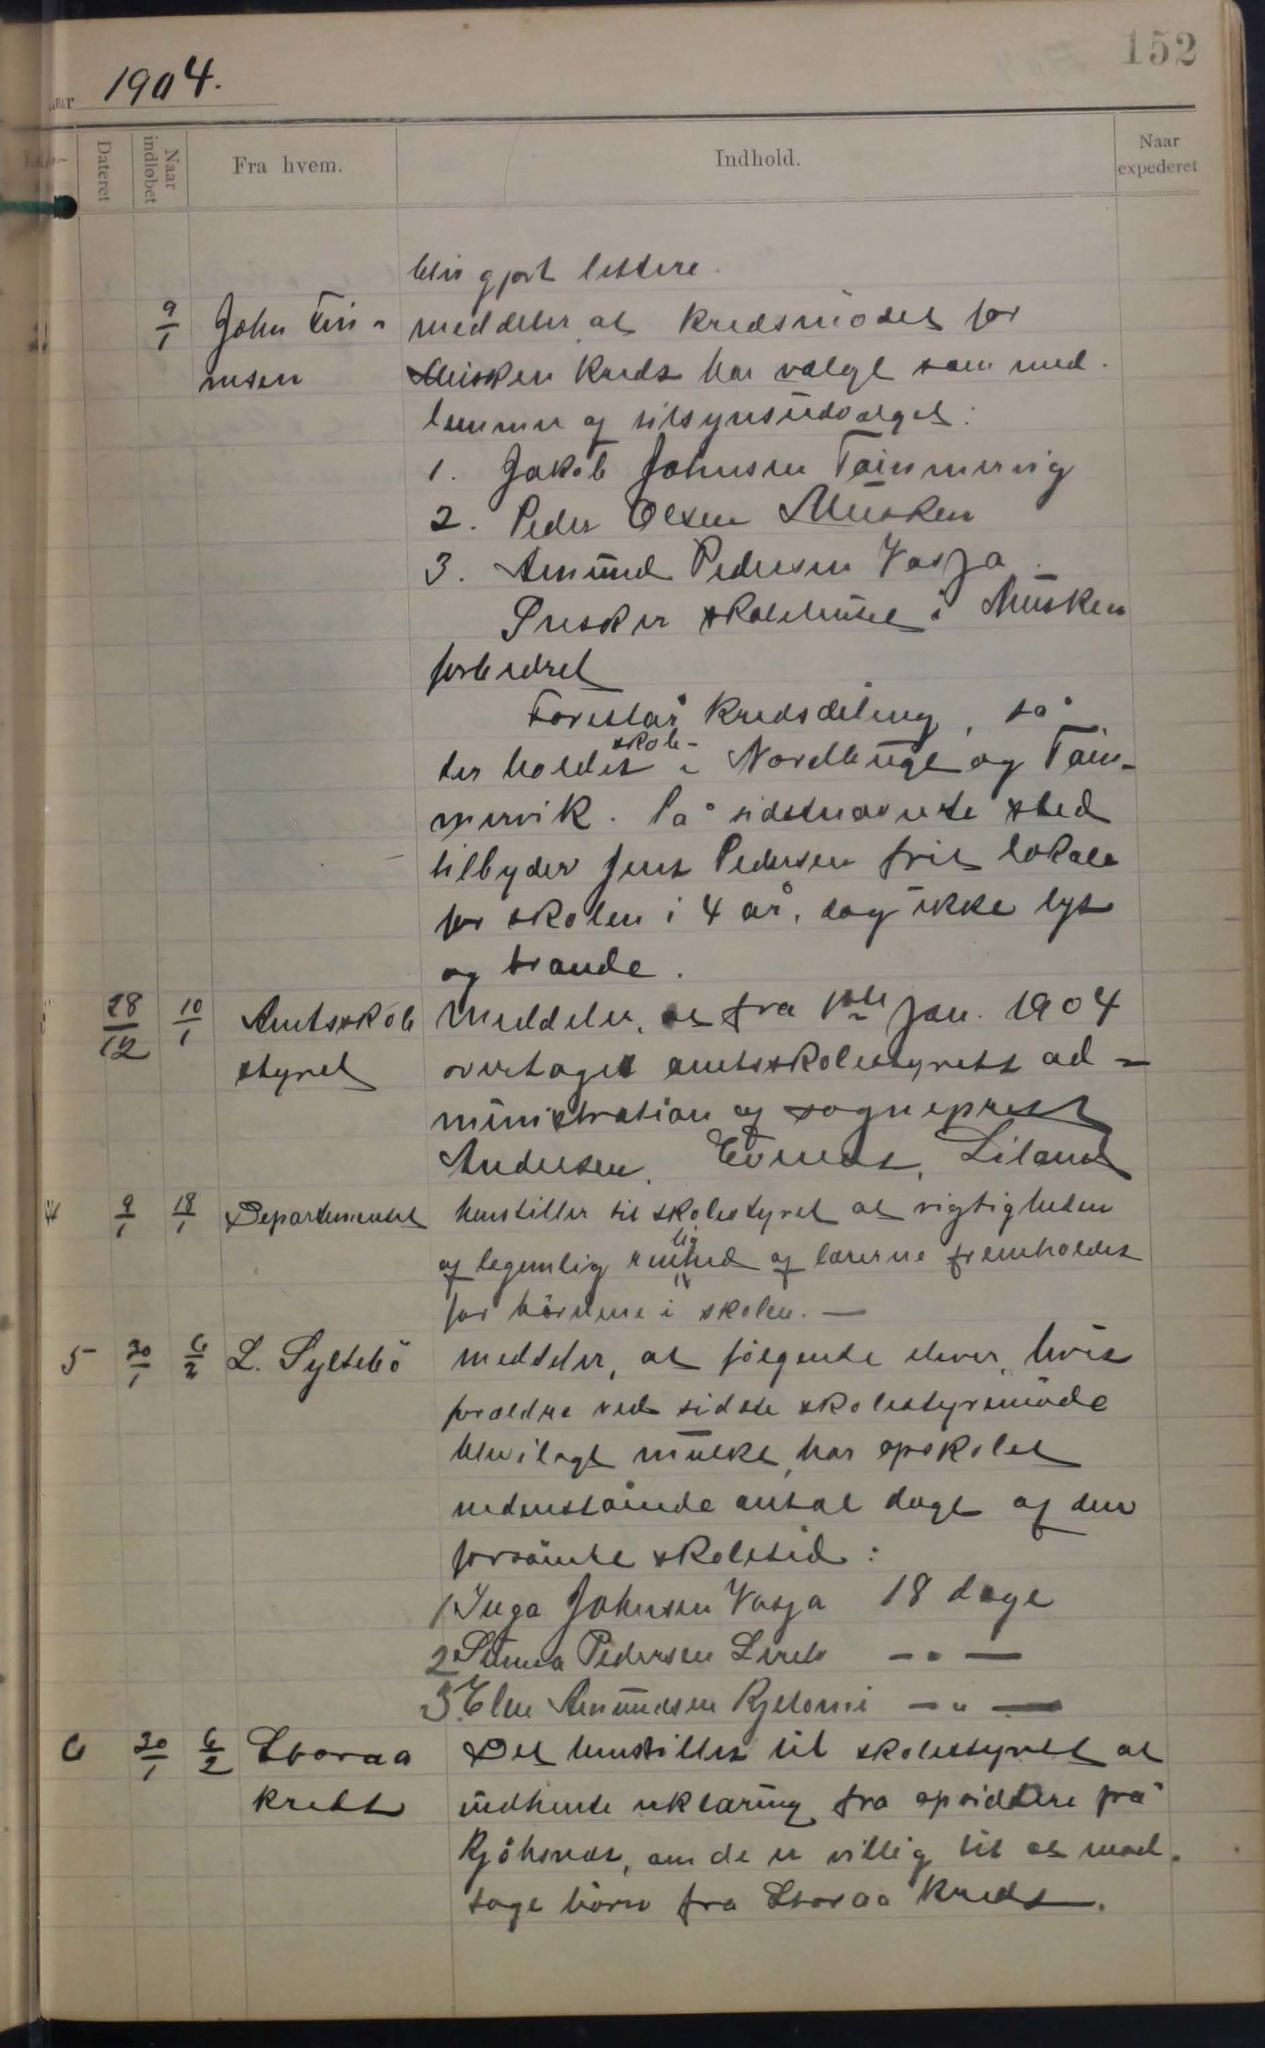 152
1904.
Dateret
Naar indløbet
Fra hvem.
Indhold.
Naar expederet
bliv gjort lettere.
9/1 John Fin- meddeler, at kredsmödet for
nsen Musken kreds har valgt som med-
lemmer af tilsynsudvalget:
1. Jakob Johnsen Tömmervig
2. Peder Olsen Musken
3. Amund Pedersen Vasja
Ønsker skolehuset i Musken
forbedret
Foreslår kredsdeling, så
der holdes skole i Nordbugt og Töm-
mervik. På sidstnævnte sted
tilbyder Jens Pedersen frit lokale
for skolen i 4 år, dog ikke lys
og brænde.
28/12 10/1 Amtsskole meddeler, at fra 1ste Jan. 1904
styret overtages amtsskolestyrets ad-
ministration af sogneprest
Andersen, Evenes, Liland
4 9/1 18/1 Departementet henstiller til skolestyret at vigtigheden
af legemlig renlighed af lærerne fremholdes
for börnene i skolen. —
5 20/1 6/2 L. Syltebö meddeler, at følgende elever, hvis
forældre ved sidste skolestyremöde
blev ilagt mulkt, har opskolet
nedenstående antal dage af den
forsömte skoletid:
1 Inga Johnsen Vasja 18 dage
2 Pedersen — " —
3 Elen Amundsen — " —
6 20/1 6/2 Storaa Det henstilles til skolestyret at
krets indhente erklæring fra opsiddere på
om de er villig til at mod-
tage börn fra Storaa kreds.